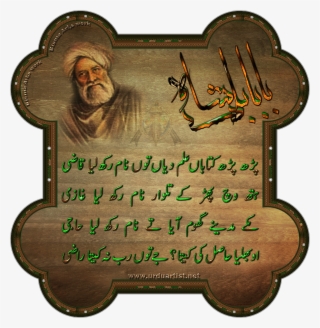 بابا بلھے شاہ
پڑھ پڑھ کتاباں علم دیاں توں نام رکھ لیا قاضی
ہتھ وچ پھڑ کے تلوار نام رکھ لیا غازی
مکے مدینے گھوم آیا تے نام رکھ لیا حاجی
او بھلیا حاصل کی کیتا؟ جے توں رب نہ کیتا راضی
www.urduartist.net